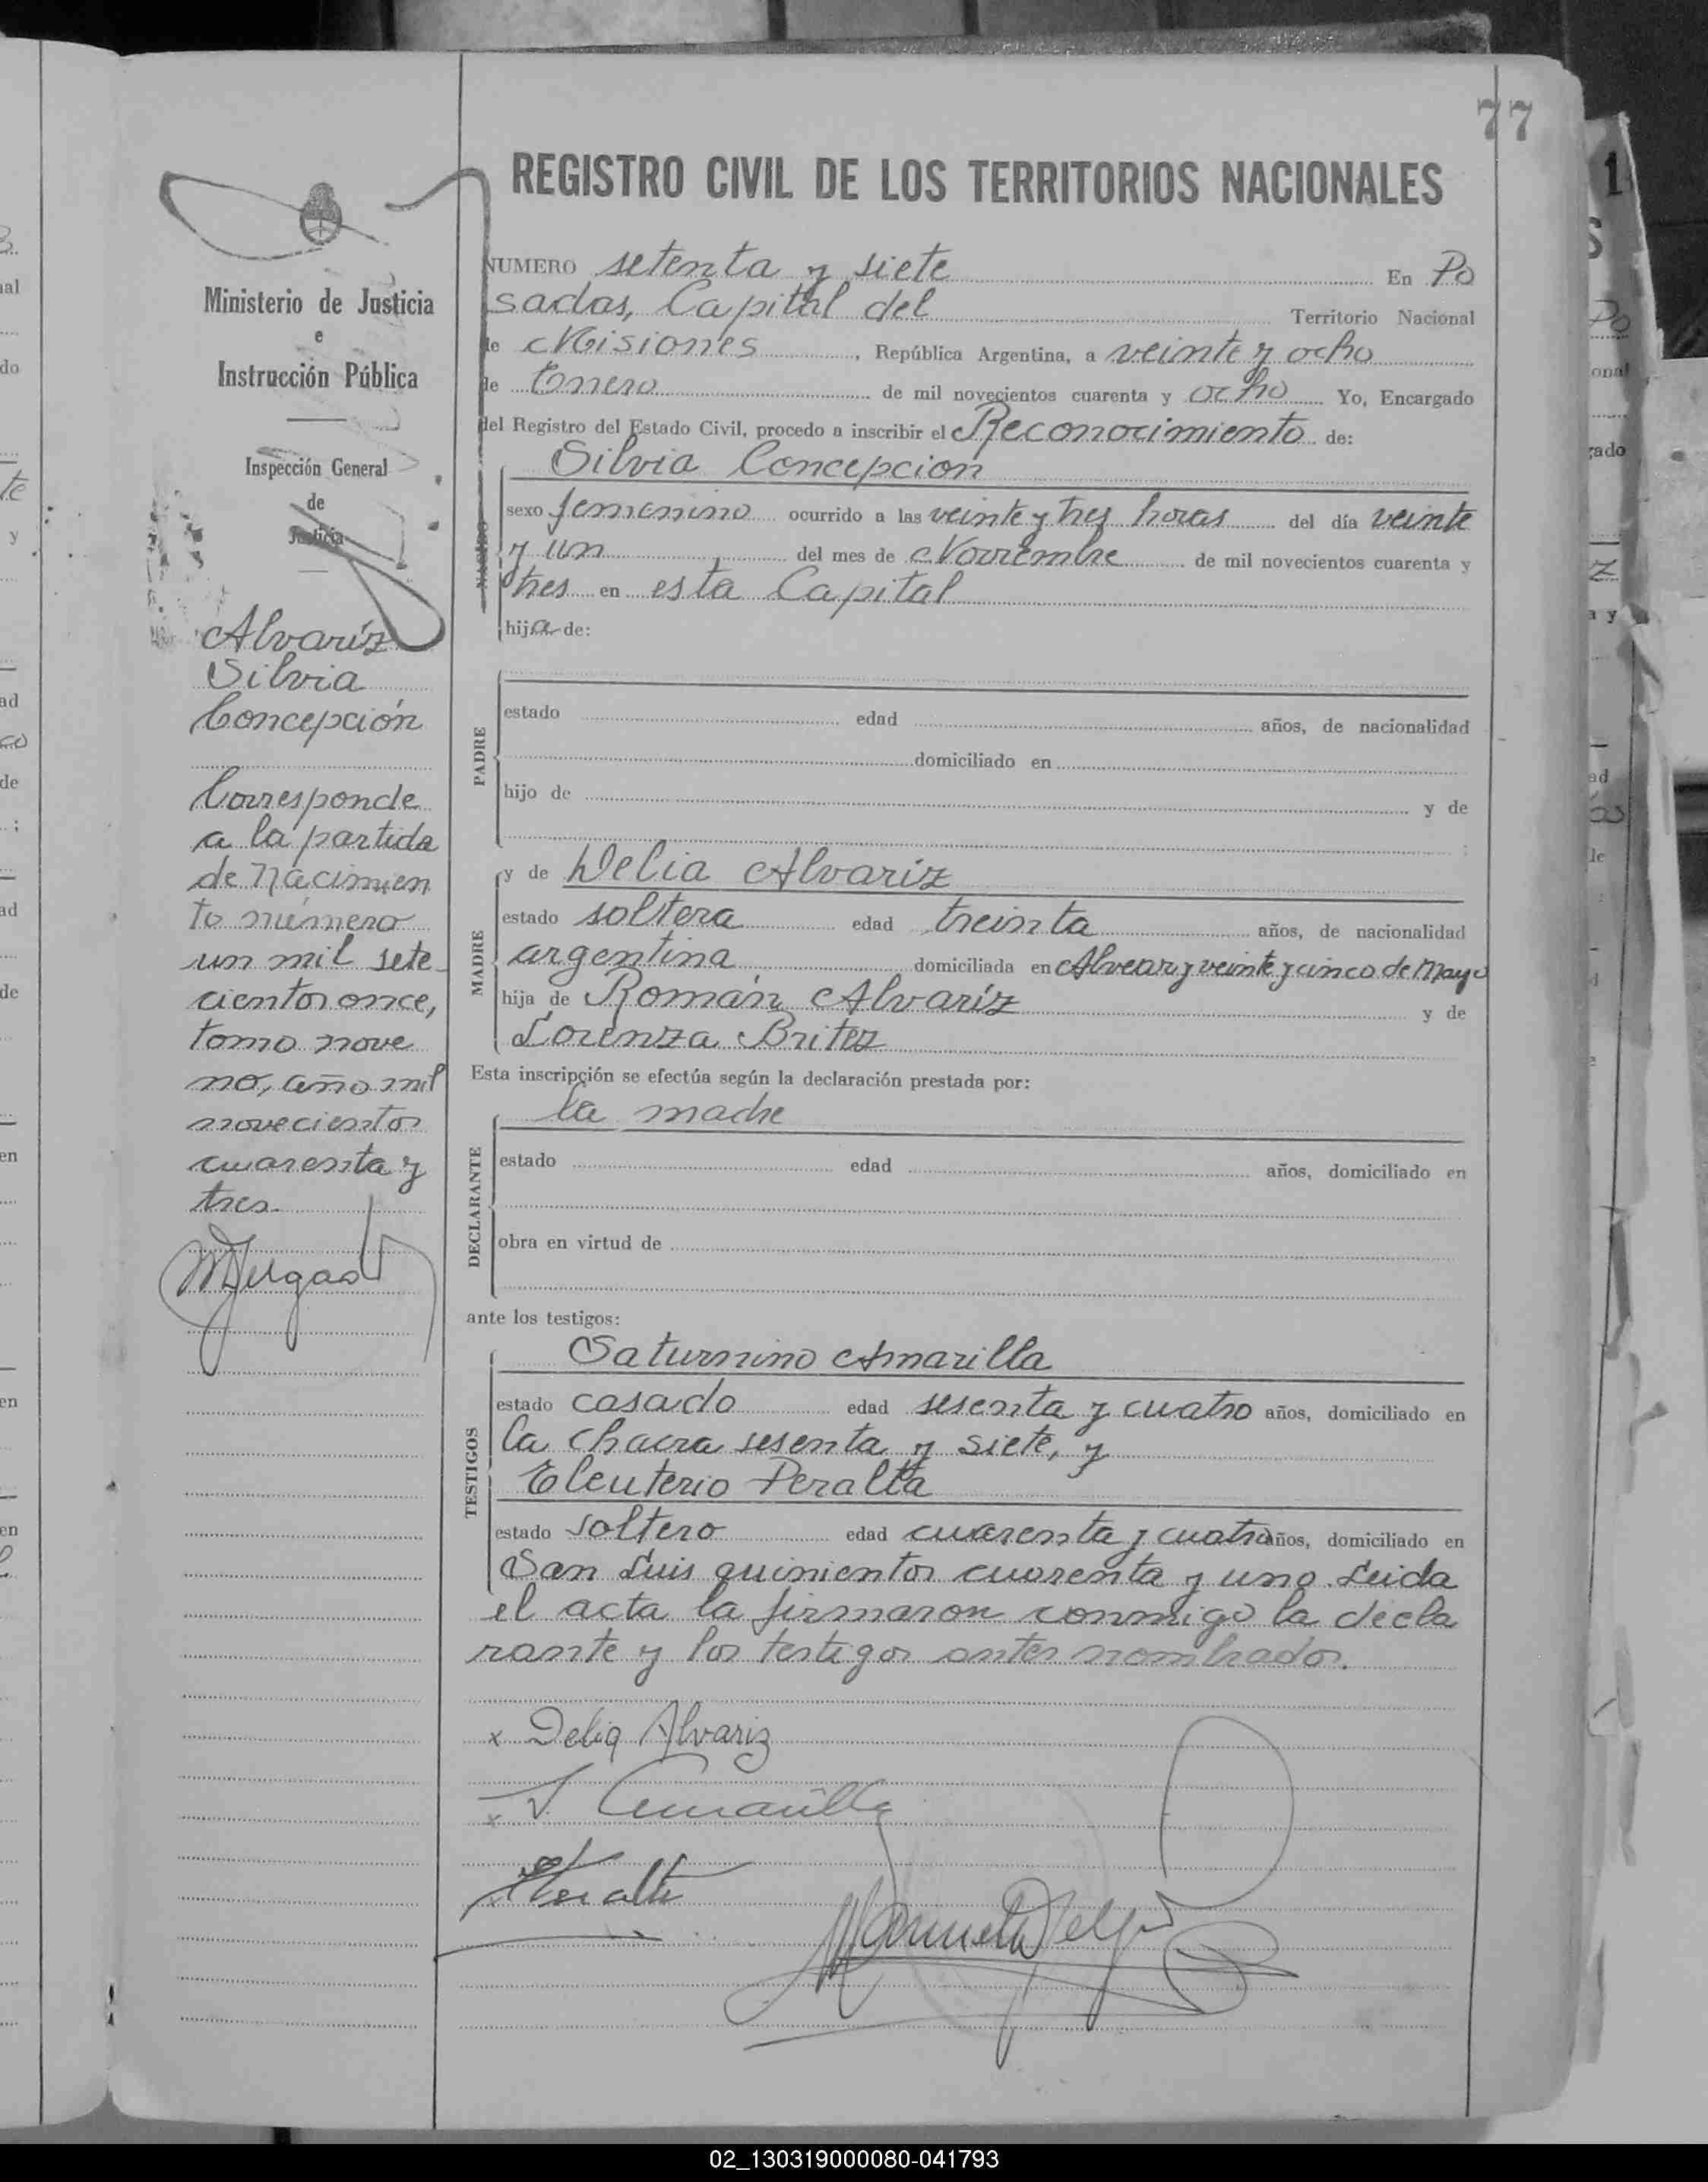 77
REGISTRO CIVIL DE LOS TERRITORIOS NACIONALES
Ministerio de Justicia
e
Instrucción Pública
Inspección General
de
Justicia
Alvaríz
Silvia
Concepción
Corresponde
a la partida
de nacimien
to número
un mil sete
cientos once,
tomo nove
no, año mil
novecientos
cuarenta y
tres.
NUMERO setenta y siete En Po
sadas, Capital del Territorio Nacional
de Misiones, República Argentina, a veinte y ocho
de Enero de mil novecientos cuarenta y ocho Yo, Encargado
del Registro del Estado Civil, procedo a inscribir el Reconocimiento de:
NACIDO
Silvia Concepcion
sexo femenino ocurrido a las veinte y tres horas del día veinte
y un del mes de Noviembre de mil novecientos cuarenta y
tres en esta Capital
hija de:
PADRE
estado edad años, de nacionalidad
domiciliado en
hijo de y de
;
MADRE
y de Delia Alvaríz
estado soltera edad treinta años, de nacionalidad
argentina domiciliada en Alvear y veinte y cinco de Mayo
hija de Román Alvaríz y de
Lorenza Britez
Esta inscripción se efectúa según la declaración prestada por:
DECLARANTE
la madre
estado edad años, domiciliado en
obra en virtud de
ante los testigos:
TESTIGOS
Saturnino Amarilla
estado casado edad sesenta y cuatro años, domiciliado en
la chacra sesenta y siete, y
Eleuterio Peralta
estado soltero edad cuarenta y cuatro años, domiciliado en
San Luis quinientos cuarenta y uno. Leida
el acta la firmaron conmigo la decla
rante y los testigos antes nombrados.
x Delia Alvariz
x S. Amarilla
x Peralta
02_130319000080-041793